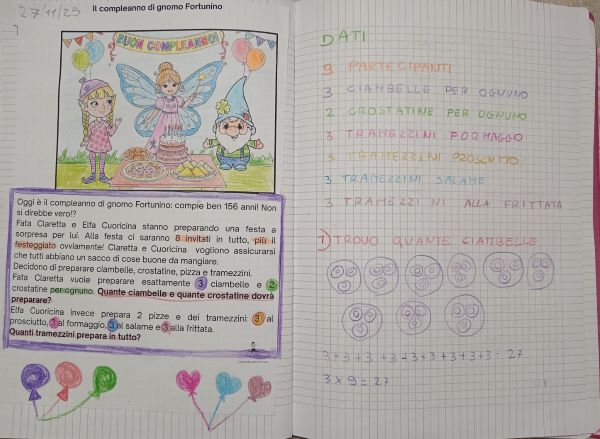 27/11/25
Il compleanno di gnomo Fortunino
BUON COMPLEANNO!
Oggi è il compleanno di gnomo Fortunino: compie ben 156 anni! Non
si direbbe vero!?
Fata Claretta e Elfa Cuoricina stanno preparando una festa a
sorpresa per lui. Alla festa ci saranno 8 invitati in tutto, più il
festeggiato ovviamente! Claretta e Cuoricina vogliono assicurarsi
che tutti abbiano un sacco di cose buone da mangiare.
Decidono di preparare ciambelle, crostatine, pizza e tramezzini.
Fata Claretta vuole preparare esattamente 3 ciambelle e 2
crostatine per ognuno. Quante ciambelle e quante crostatine dovrà
preparare?
Elfa Cuoricina invece prepara 2 pizze e dei tramezzini: 3 al
prosciutto, 3 al formaggio, 3 al salame e 3 alla frittata.
Quanti tramezzini prepara in tutto?
DATI
9 PARTECIPANTI
3 CIAMBELLE PER OGNUNO
2 CROSTATINE PER OGNUNO
3 TRAMEZZINI FORMAGGO
3 TRAMEZZINI PROSCIUTTO
3 TRAMEZZINI SALAME
3 TRAMEZZINI ALLA FRITTATA
1) TROVO QUANTE CIAMBELLE
3+3+3+3+3+3+3+3+3=27
3x9=27